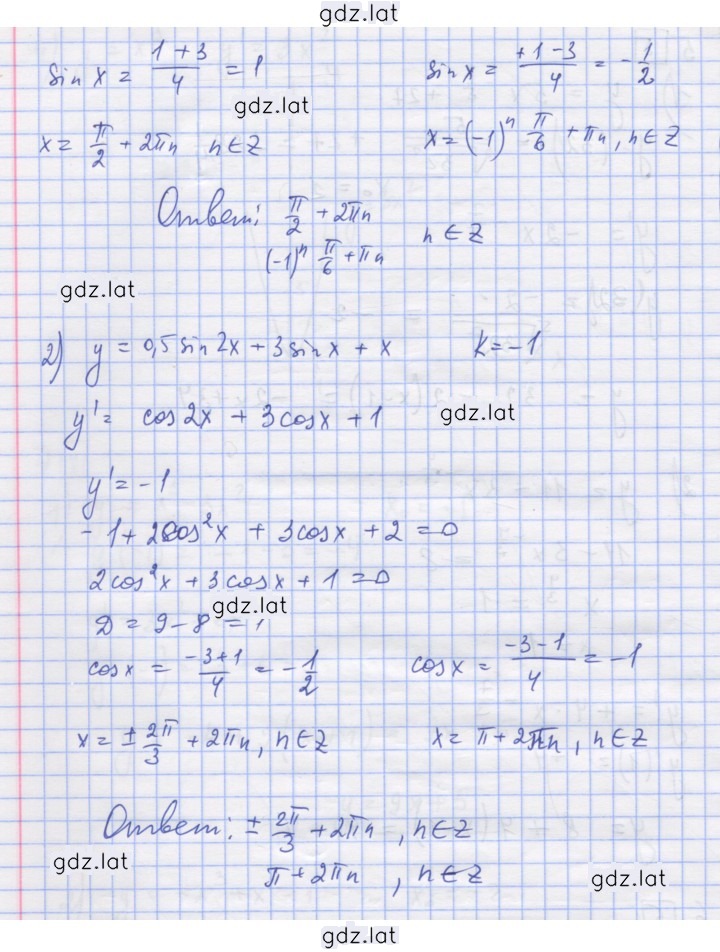 gdz.lat
sin x = (1+3)/4 = 1    sin x = (+1−3)/4 = −1/2
gdz.lat
x = π/2 + 2πn n∈Z    x = (−1)ⁿ π/6 + πn, n∈Z
Ответ: π/2 + 2πn
(−1)ⁿ π/6 + πn    n∈Z
gdz.lat
2) y = 0,5 sin 2x + 3 sin x + x    k = −1
y' = cos 2x + 3 cos x + 1
gdz.lat
y' = −1
−1 + 2cos²x + 3cos x + 2 = 0
2cos²x + 3cos x + 1 = 0
gdz.lat
D = 9 − 8 = 1
cos x = (−3+1)/4 = −1/2    cos x = (−3−1)/4 = −1
x = ± 2π/3 + 2πn, n∈Z    x = π + 2πn, n∈Z
Ответ: ± 2π/3 + 2πn, n∈Z
gdz.lat
π + 2πn, n∈Z
gdz.lat
gdz.lat